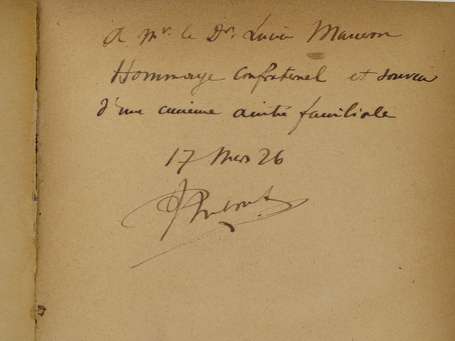 A Mr. le Dr. Lucien
Hommage Confraternel et souvenir
d'une ancienne amitié familiale
17 Mars 26